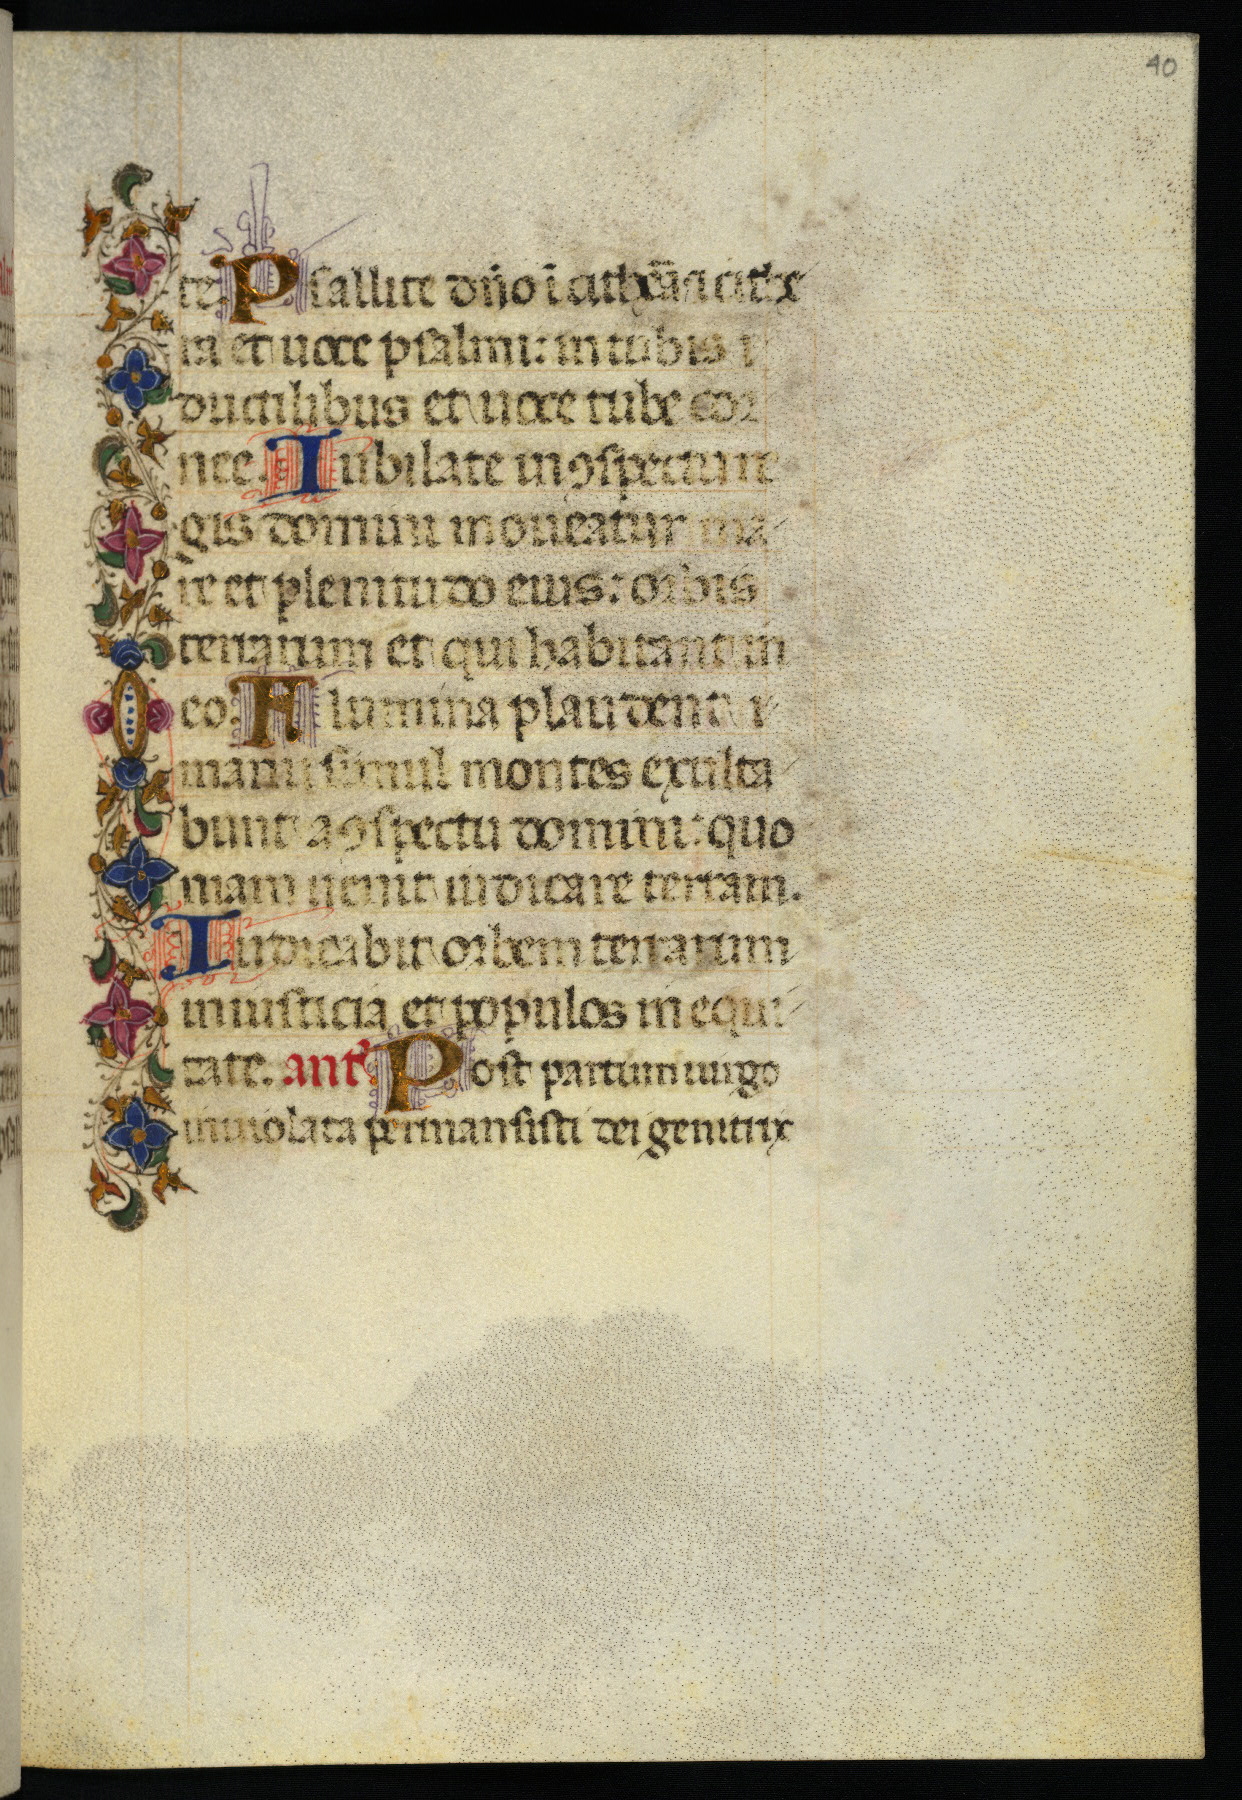 40
te. Psallite dño ī cithara ī cithr
ra et uoce psalmi: in tubis
ductilibus et uoce tube cor
nee. Iubilate in ꝯspectu re
gis domini moueatur ma
re et plenitudo eius: orbis
terrarum et qui habitant in
eo. Flumina plaudent
manu simul montes exulta
bunt a ꝯspectu domini: quo
niam uenit iudicare terram.
Iudicabit orbem terrarum
in iusticia et populos in equi
tate. ant̄ Post partum uirgo
inuiolata permansisti dei genitrix